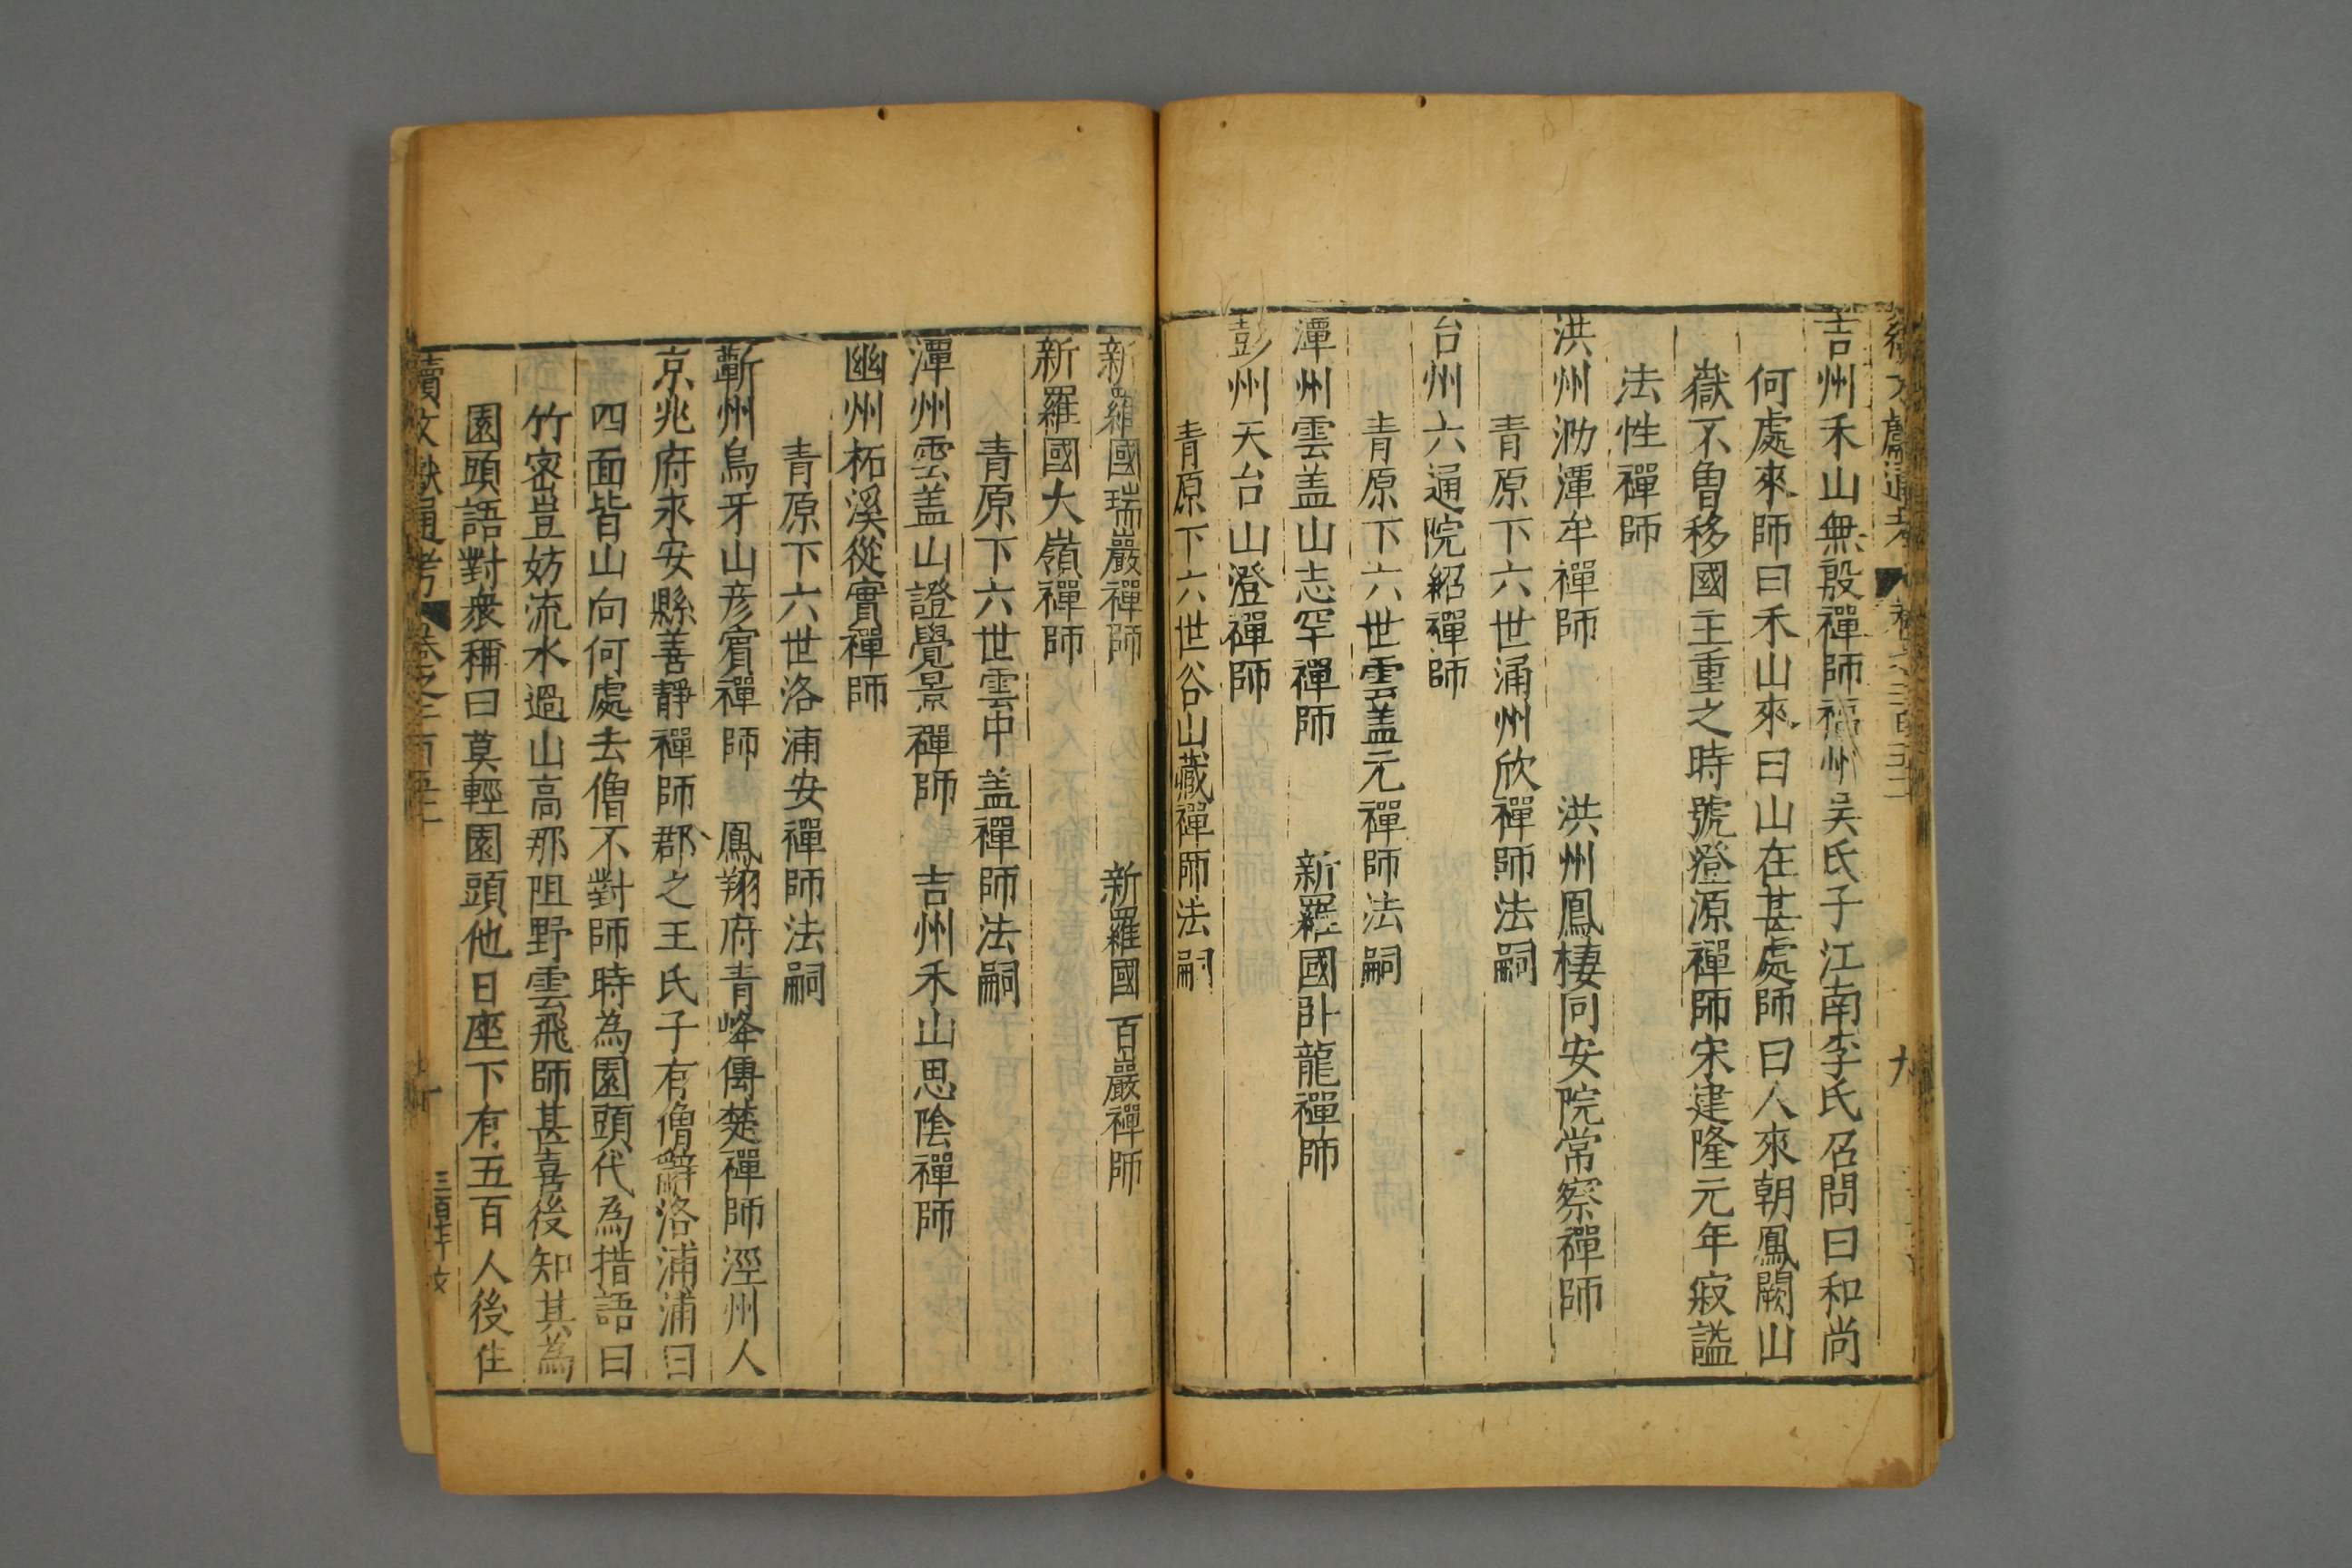 吉州禾山無殷禪師福州吴氏子江南李氏召問曰和尚
何處來師曰禾山來曰山在甚處師曰人來朝鳳闕山
嶽不曽移國主重之時號澄源禪師宋建隆元年寂謚
法性禪師
洪州泐潭牟禪師 洪州鳳棲同安院常察禪師
青原下六世涌州欣禪師法嗣
台州六通院紹禪師
青原下六世雲盖元禪師法嗣
潭州雲盖山志罕禪師 新羅國卧龍禪師
彭州天台山澄禪師
青原下六世谷山藏禪師法嗣
新羅國瑞嚴禪師 新羅國百嚴禪師
新羅國大嶺禪師
青原下六世雲中盖禪師法嗣
潭州雲盖山證覺景禪師 吉州禾山思陰禪師
幽州柘溪從實禪師
青原下六世洛浦安禪師法嗣
蘄州烏牙山彦賔禪師 鳳翔府青峰傳楚禪師涇州人
京兆府永安縣善靜禪師郡之王氏子有僧辭洛浦浦曰
四面皆山向何處去僧不對師時為園頭代為措語曰
竹密豈妨流水過山高那阻野雲飛師甚喜後知其為
園頭語對衆稱曰莫輕園頭他日座下有五百人後住
續文獻通考 卷之二百五十 十